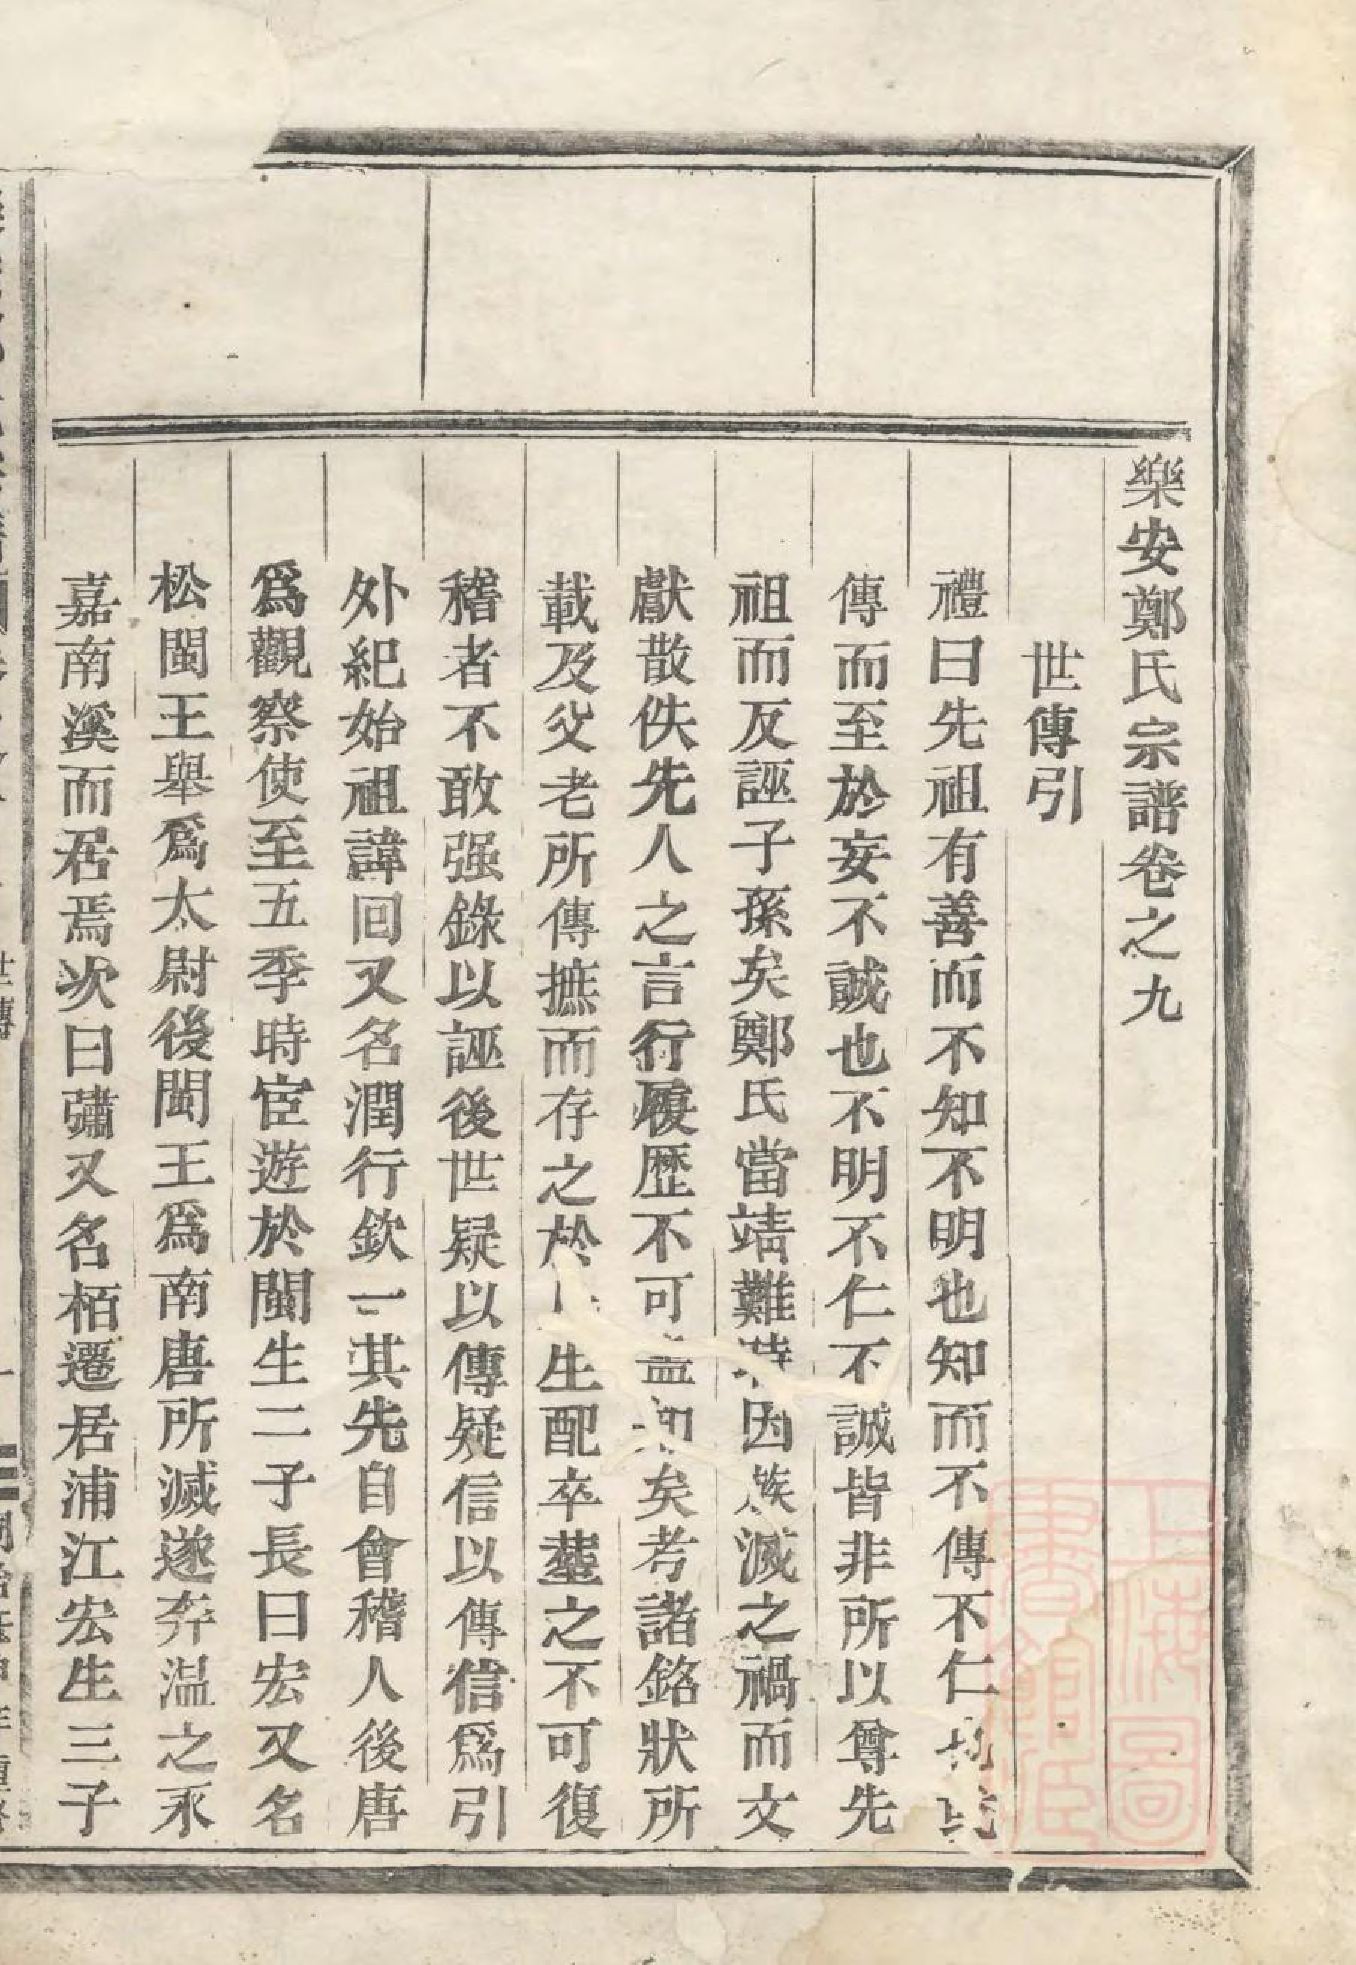 樂安鄭氏宗譜卷之九
世傳引
禮曰先祖有善而不知不明也知而不傳不仁
傳而至於妄不誠也不明不仁不誠皆非所以尊先
祖而反誣子孫矣鄭氏當靖難時因族滅之禍而文
獻散佚先人之言行履歴不可盡知矣考諸銘狀所
載及父老所傳摭而存之於生配卒塟之不可復
稽者不敢强錄以誣後世疑以傳疑信以傳信爲引
外紀始祖諱回又名潤行欽一其先自會稽人後唐
爲觀察使至五季時宦遊於閩生二子長曰宏又名
松閩王舉爲太尉後閩王爲南唐所滅遂奔温之永
嘉南溪而居焉次曰彇又名栢遷居浦江宏生三子
世傳
上海圖書館藏